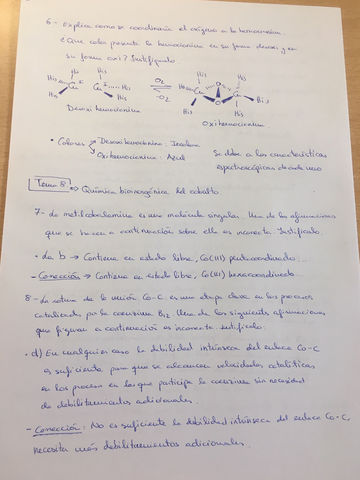 6- Explica como se coordina el oxígeno a la hemocianina.
¿Que color presenta la hemocianina en su forma deoxi y en
su forma oxi? Justifícalo
His His His His
His Cu I Cu I His O2 -O2 His Cu O O Cu His
His His His His
Desoxi hemocianina Oxihemocianina
• Colores Desoxihemocianina: Incolora
Oxihemocianina: Azul
Se debe a las características
espectroscópicas de cada uno
Tema 8 → Química bioinorgánica del cobalto.
7- La metilcobalamina es una molécula singular. Una de las afirmaciones
que se hacen a continuación sobre ella es incorrecta. Justifícalo
• La b → Contiene en estado libre, Co(III) pentacoordinado...
- Corrección → Contiene en estado libre, Co(III) hexacoordinado...
8- La rotura de la unión Co-C es una etapa clave en los procesos
catalizados por la coenzima B12. Una de las siguientes afirmaciones
que figuran a continuación es incorrecta justifícalo.
• d) En cualquier caso la debilidad intrínseca del enlace Co-C
es suficiente para que se alcancen velocidades catalíticas
en los procesos en los que participe la coenzima sin necesidad
de debilitamientos adicionales.
- Corrección: No es suficiente la debilidad intrínseca del enlace Co-C,
necesita más debilitamientos adicionales.